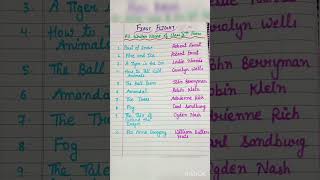 First Flight
All Writer Name of Class 10th Poem
1. Dust of Snow Robert Frost
2. Fire and Ice Robert Frost
3. A Tiger in the Zoo Leslie Norris
4. How to Tell Wild Animals Carolyn Wells
5. The Ball Poem John Berryman
6. Amanda! Robin Klein
7. The Trees Adrienne Rich
8. Fog Carl Sandburg
9. The Tale of Custard the Dragon Ogden Nash
10. For Anne Gregory William Butler Yeats
3. A Tiger
4. How to
Animals
5. The Ball
6. Amanda!
7. The Trees
8. Fog
9. The Tale
Carolyn Wells
John Berryman
Robin Klein
Adrienne Rich
Carl Sandburg
Ogden Nash